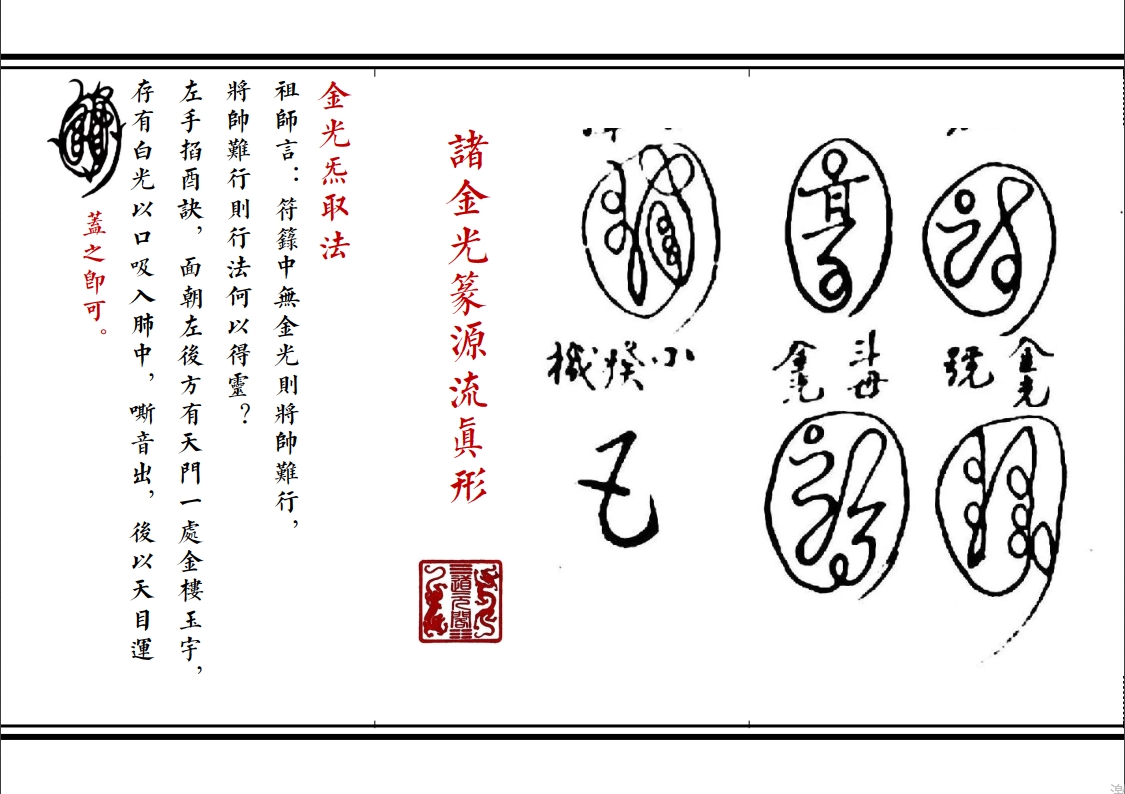 金光
號
斗母
金光
小
機
諸金光篆源流眞形
道元閣
金光炁取法
祖師言：符籙中無金光則將帥難行，
將帥難行則行法何以得靈？
左手掐酉訣，面朝左後方有天門一處金樓玉宇，
存有白光以口吸入肺中，嘶音出，後以天目運
蓋之卽可。